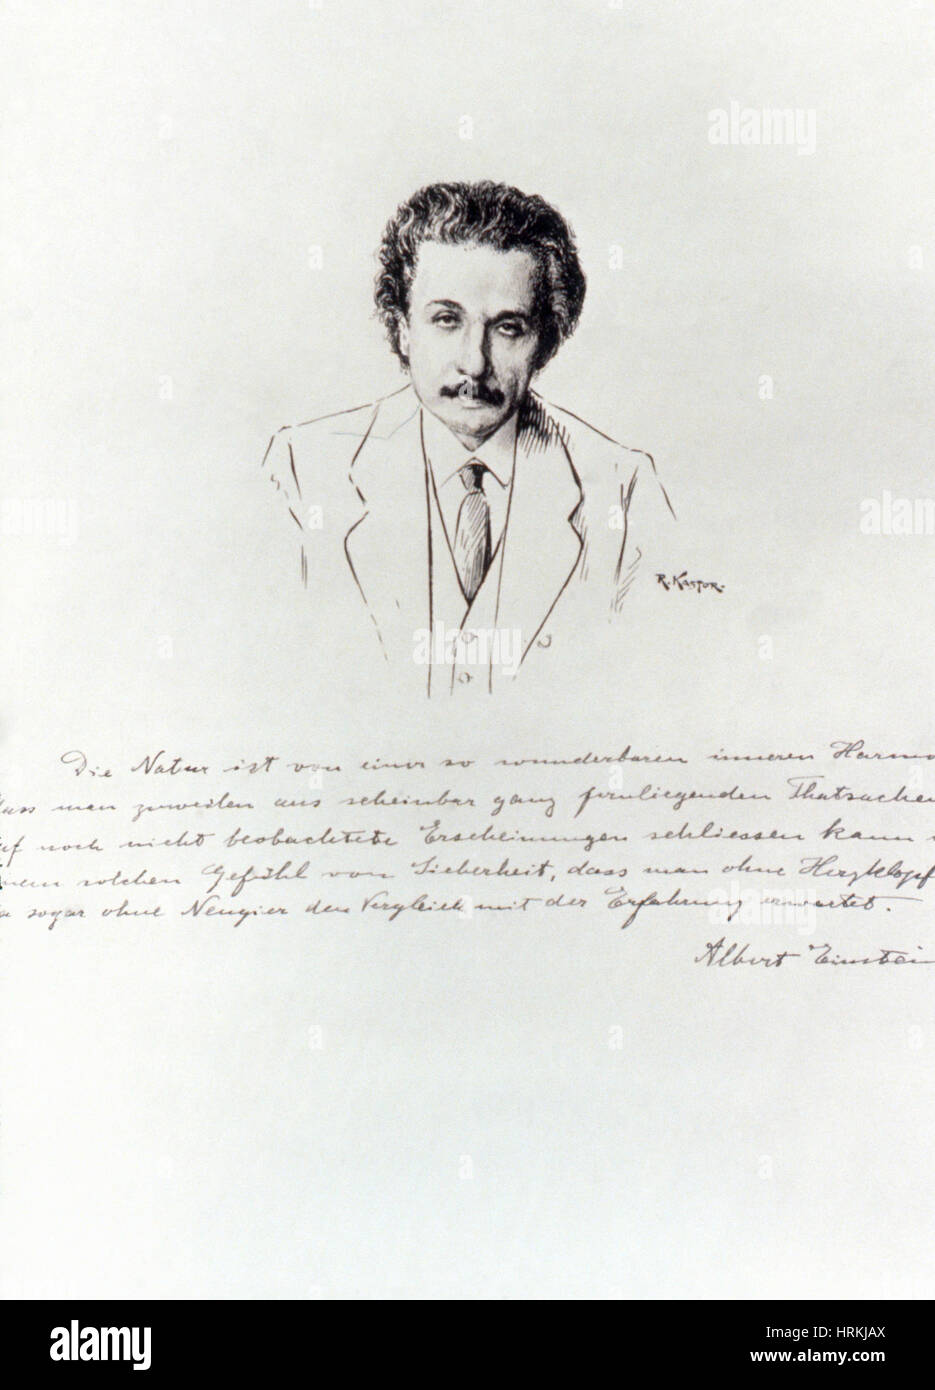 alamy
a
R. Kastor.
Die Natur ist von einer so wunderbaren inneren Harmo
dass man zuweilen aus scheinbar ganz fernliegenden Thatsachen
auf noch nicht beobachtete Erscheinungen schliessen kann
einem solchen Gefühl von Sicherheit, dass man ohne Herzklopf
ja sogar ohne Neugier den Vergleich mit der Erfahrung erwartet.
Albert Einstein
alamy stock photo
HRKJAX
www.alamy.com